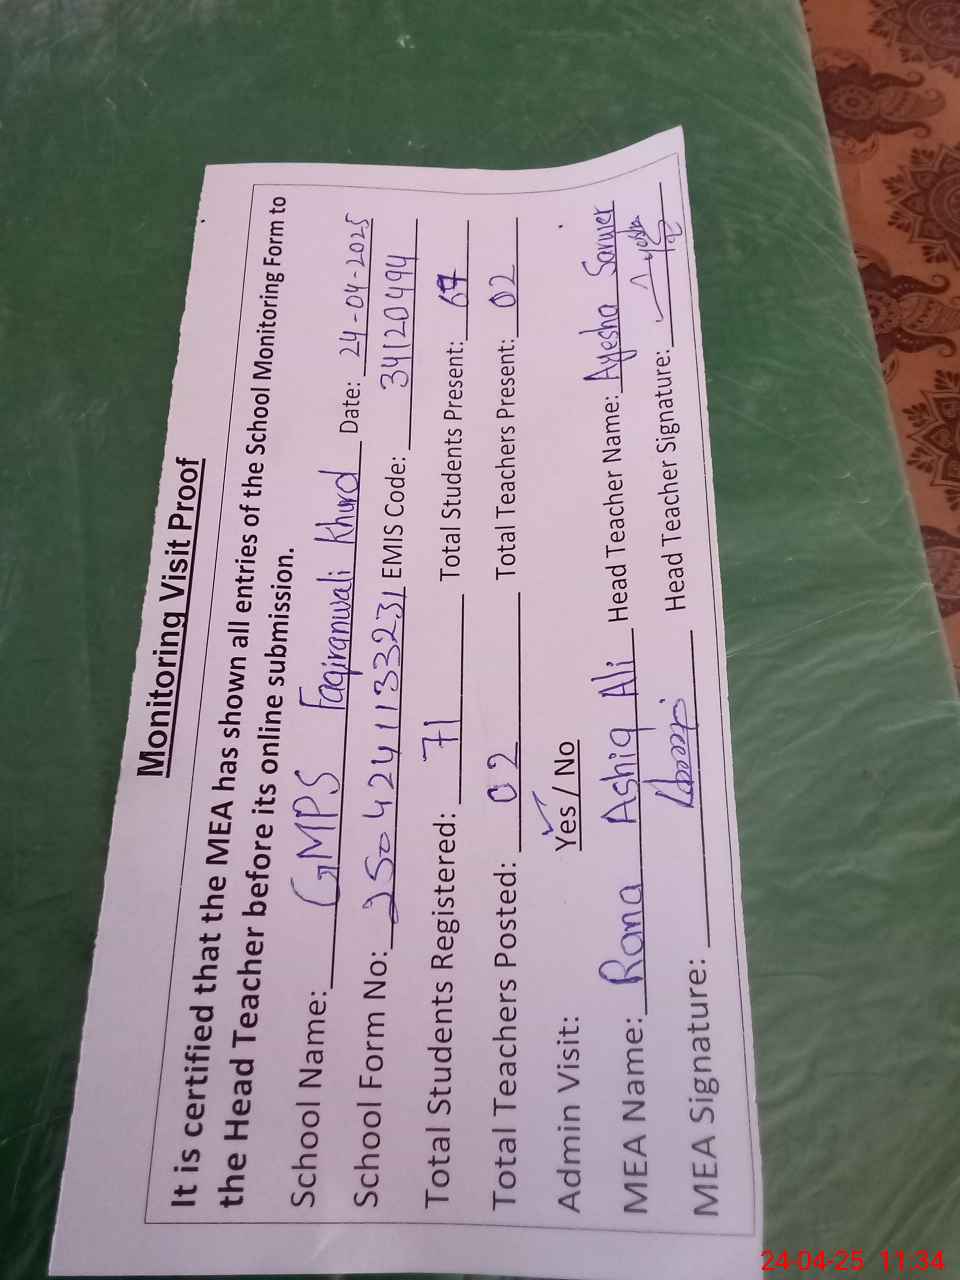 Monitoring Visit Proof
It is certified that the MEA has shown all entries of the School Monitoring Form to
the Head Teacher before its online submission.
School Name: GMPS Faqiranwali Khurd Date: 24-04-2025
School Form No: 250424113323 1 EMIS Code: 34120494
Total Students Registered: 71 Total Students Present:
Total Teachers Posted: 02 Total Teachers Present: 02
Admin Visit: Yes / No
MEA Name: Rana Ashiq Ali Head Teacher Name: Ayesha Sarwer
MEA Signature: Head Teacher Signature:
24-04-25 11:34